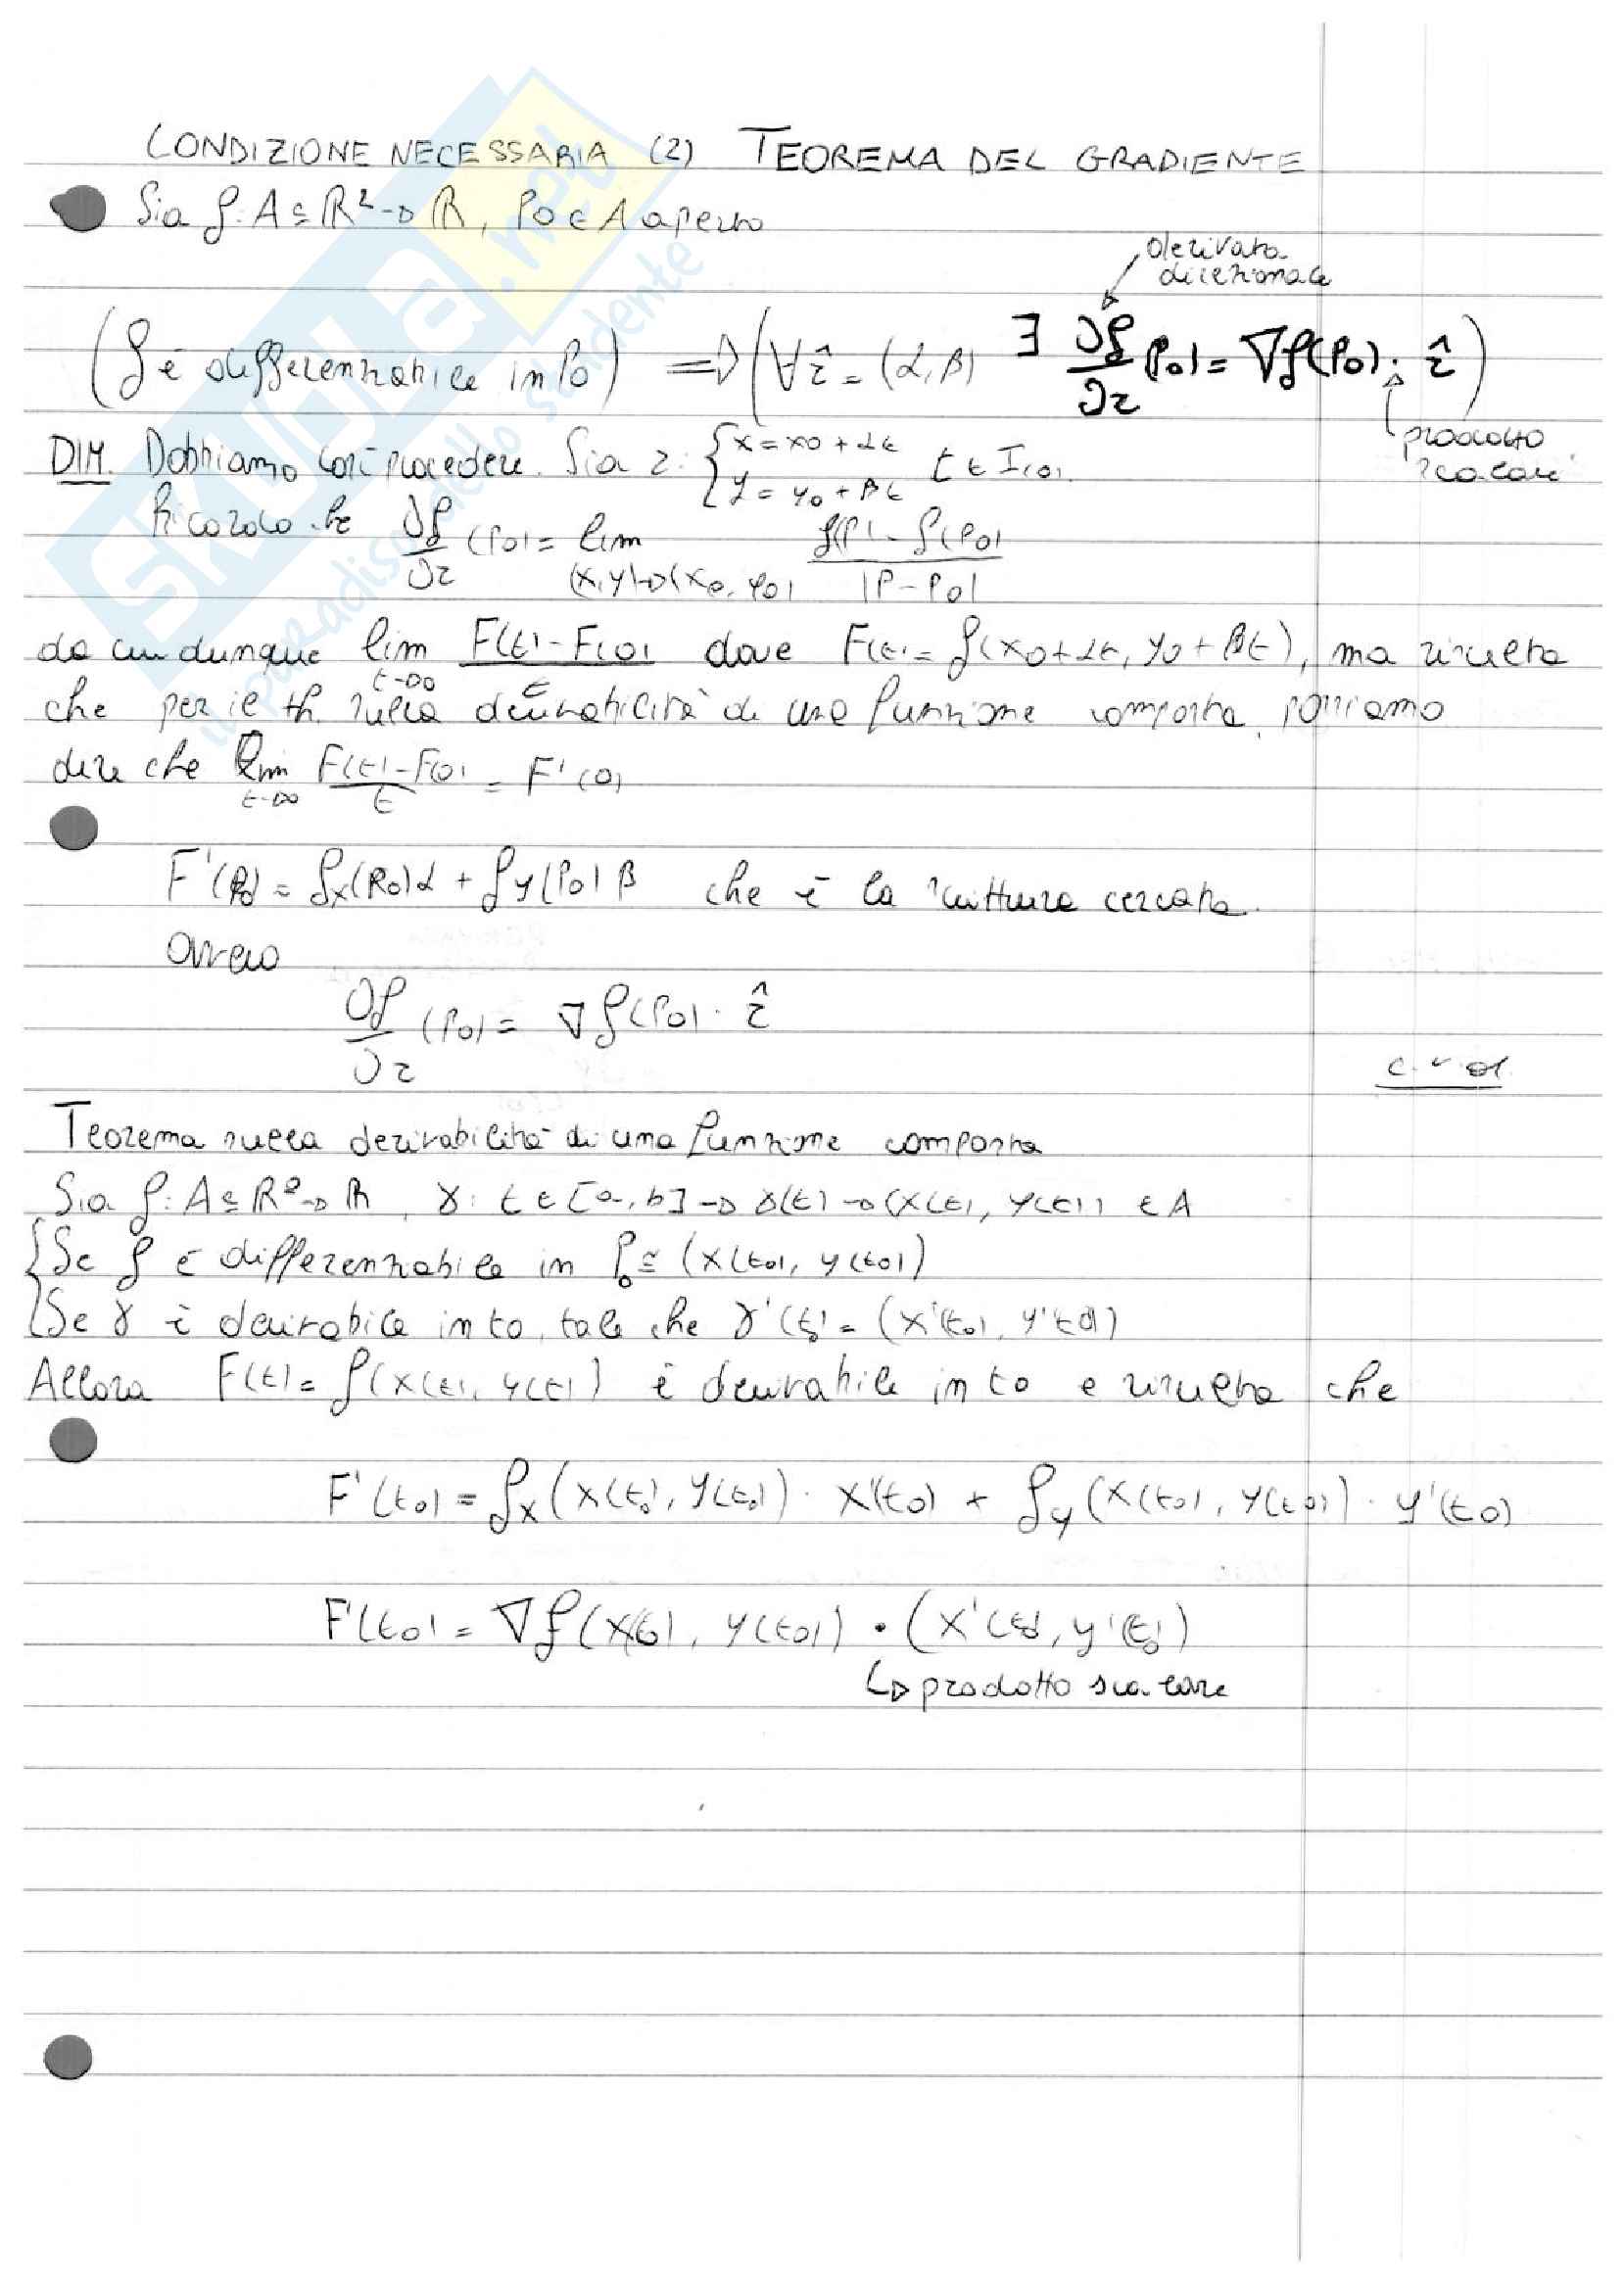 CONDIZIONE NECESSARIA (2) TEOREMA DEL GRADIENTE
Sia f: A ⊆ R² → R, P0 ∈ A aperto
derivata
direzionale
(f è differenziabile in P0) ⟹ (∀ r̂ = (α, β) ∃ ∂f/∂r (P0) = ∇f(P0) · r̂)
prodotto
scalare
DIM. Dobbiamo così procedere. Sia r: { x = x0 + αt
y = y0 + βt t ∈ I(0)
Ricordo che ∂f/∂r (P0) = lim (x,y)→(x0,y0) f(P) - f(P0) / |P - P0|
da cui dunque lim t→0 F(t) - F(0) / t dove F(t) = f(x0 + αt, y0 + βt), ma risulta
che per il th. sulla derivabilità di una funzione composta, possiamo
dire che lim t→0 F(t) - F(0) / t = F'(0)
F'(P0) = fx(P0)α + fy(P0)β che è la scrittura cercata.
Ovvero
∂f/∂r (P0) = ∇f(P0) · r̂
c.v.d.
Teorema sulla derivabilità di una funzione composta
Sia f: A ⊆ R² → R, γ: t ∈ [a, b] → γ(t) → (x(t), y(t)) ∈ A
{ Se f è differenziabile in P0 ≡ (x(t0), y(t0))
Se γ è derivabile in t0, tale che γ'(t0) = (x'(t0), y'(t0))
Allora F(t) = f(x(t), y(t)) è derivabile in t0 e risulta che
F'(t0) = fx(x(t0), y(t0)) · x'(t0) + fy(x(t0), y(t0)) · y'(t0)
F'(t0) = ∇f(x(t0), y(t0)) · (x'(t0), y'(t0))
↳ prodotto scalare
SKUOLA.net
il paradiso dello studente